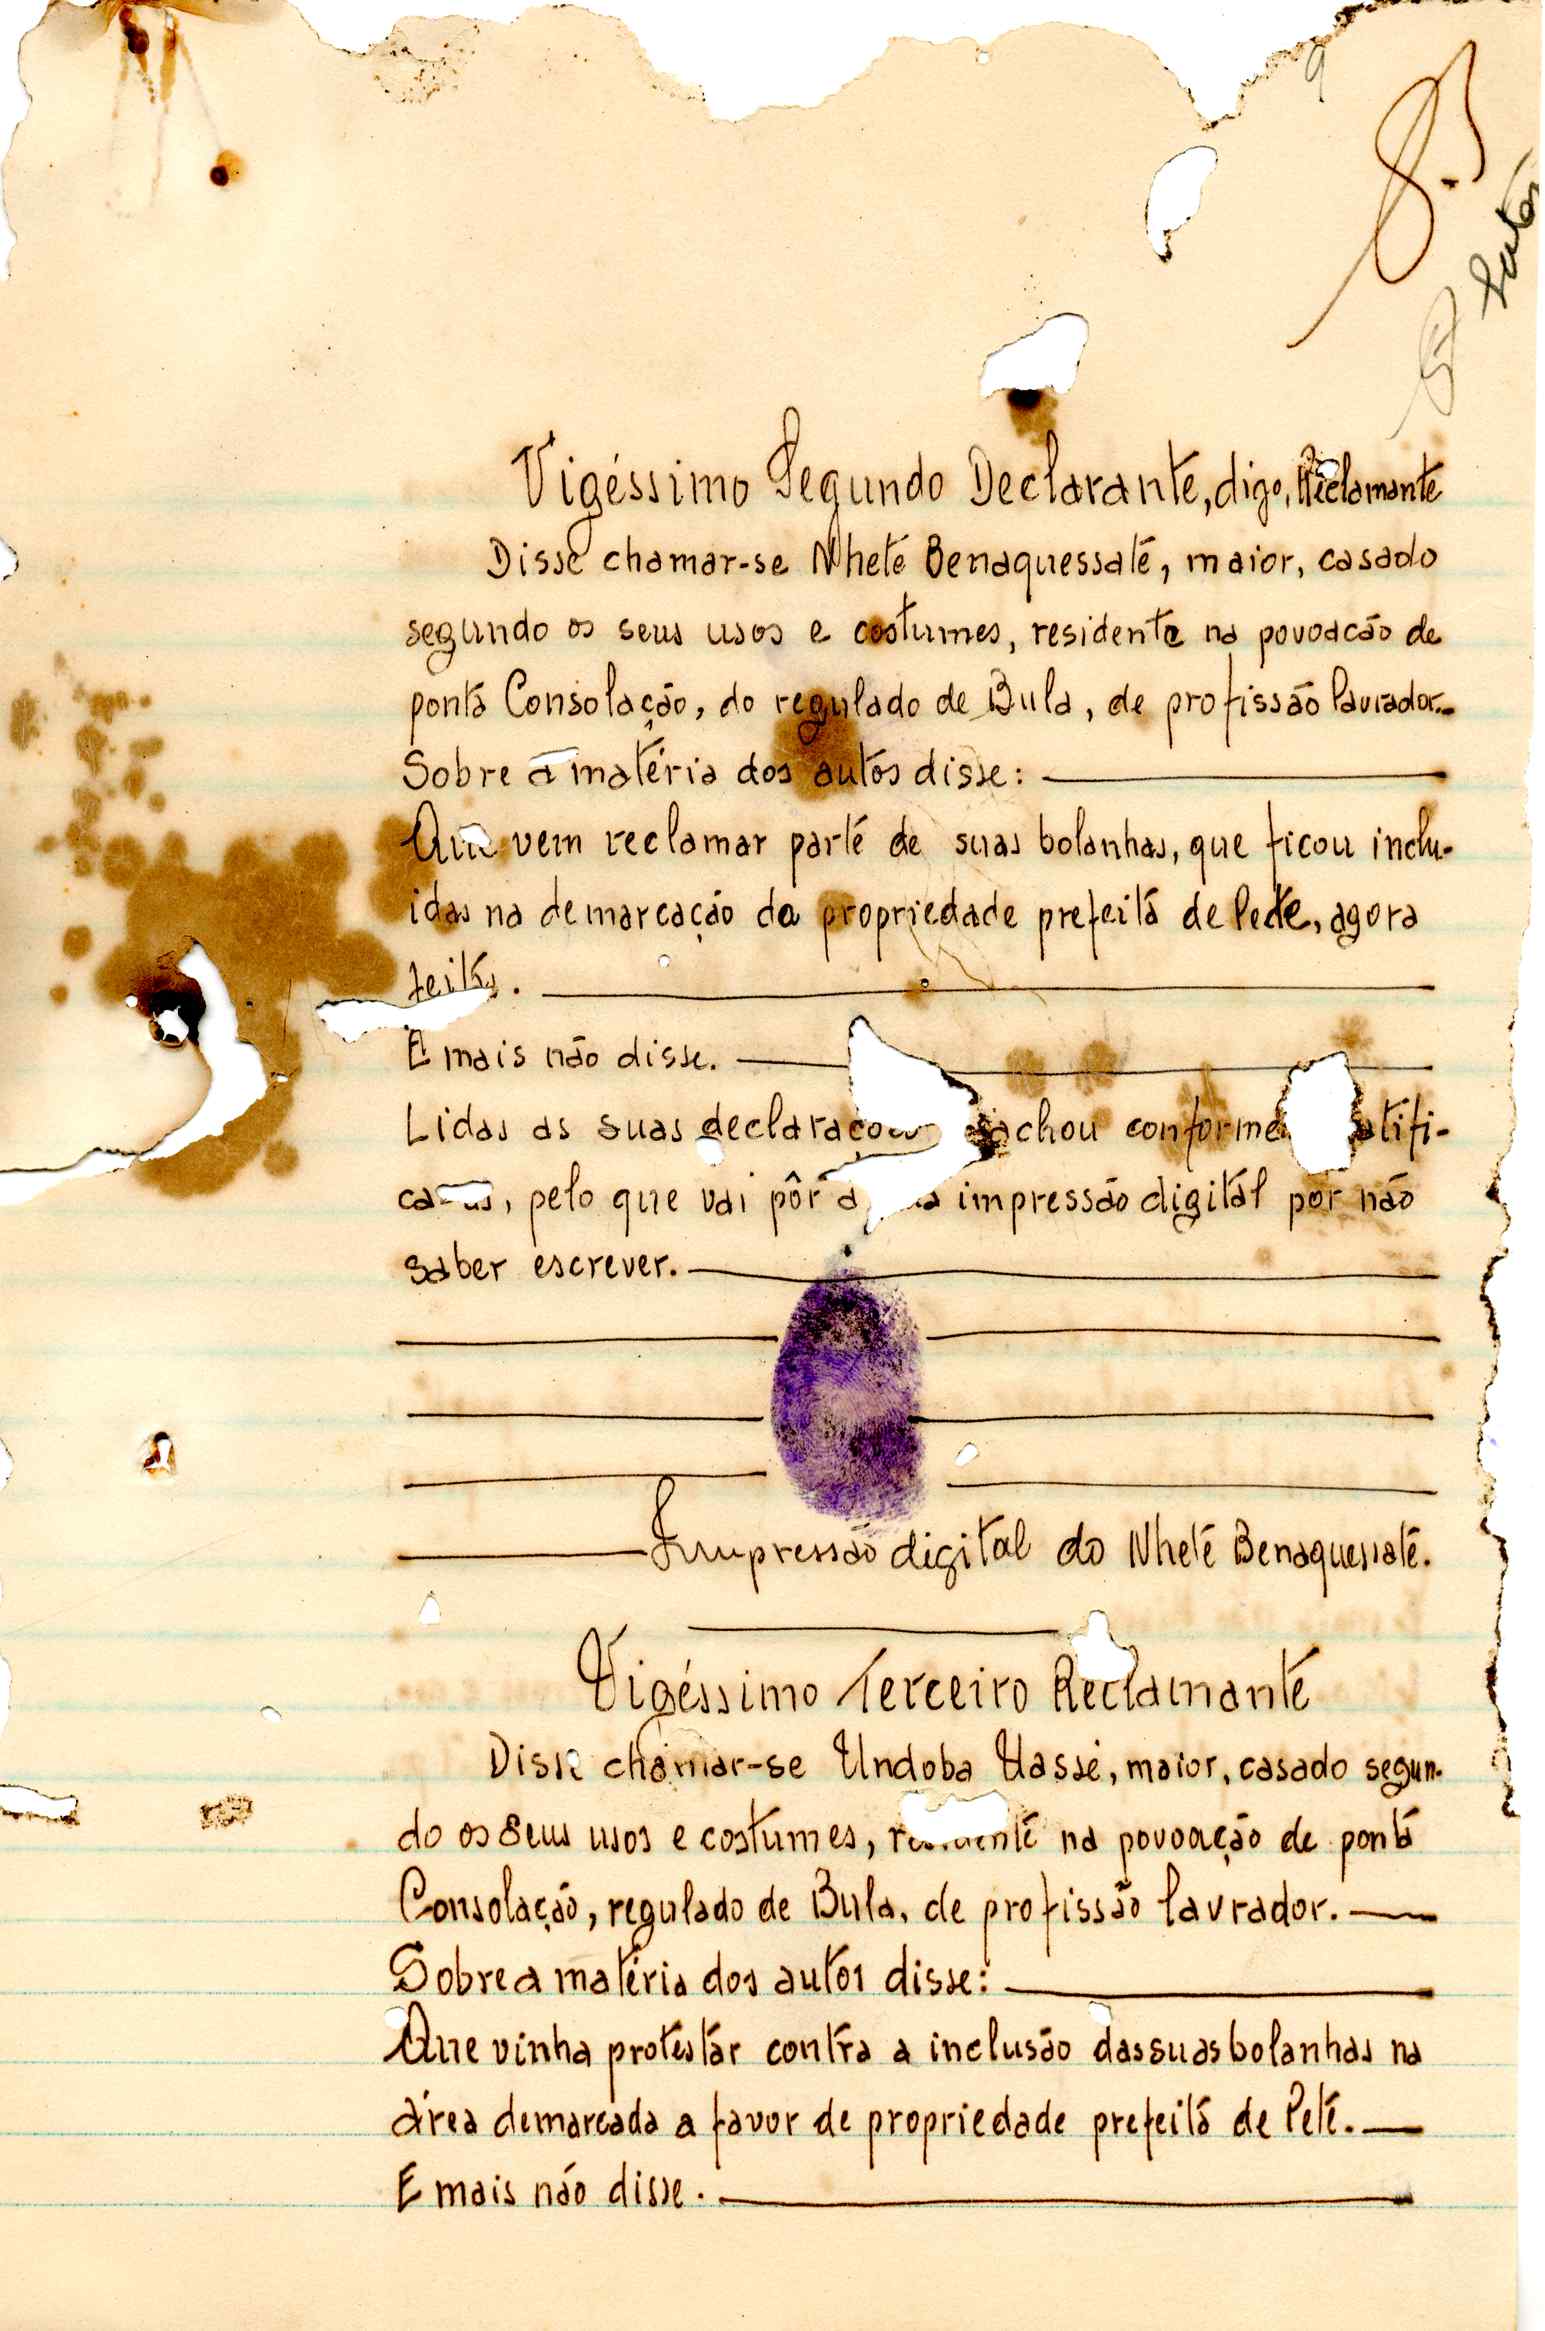 9
Vigéssimo Segundo Declarante, digo, Reclamante
Disse chamar-se Nheté Benaquessaté, maior, casado
segundo os seus usos e costumes, residente na povoacão de
pontá Consolação, do regulado de Bula, de profissão lavrador.
Sobre a matéria dos autos disse:
Que vem reclamar parté de suas bolanhas, que ficou inclu-
idas na demarcação da propriedade prefeitá de Peté, agora
feitá.
E mais não disse.
Lidas as suas declarações achou conforme ratifi-
cadas, pelo que vai pôr a sua impressão digitál por não
saber escrever.
Impressão digital do Nheté Benaquessaté.
Vigéssimo Terceiro Reclamanté
Disse chamar-se Undoba Uassé, maior, casado segun-
do os seus usos e costumes, residenté na povoação de pontá
Consolação, regulado de Bula, de profissão lavrador.
Sobre a matéria dos autos disse:
Que vinha protestár contra a inclusão das suas bolanhas na
área demarcada a favor de propriedade prefeitá de Peté.
E mais não disse.